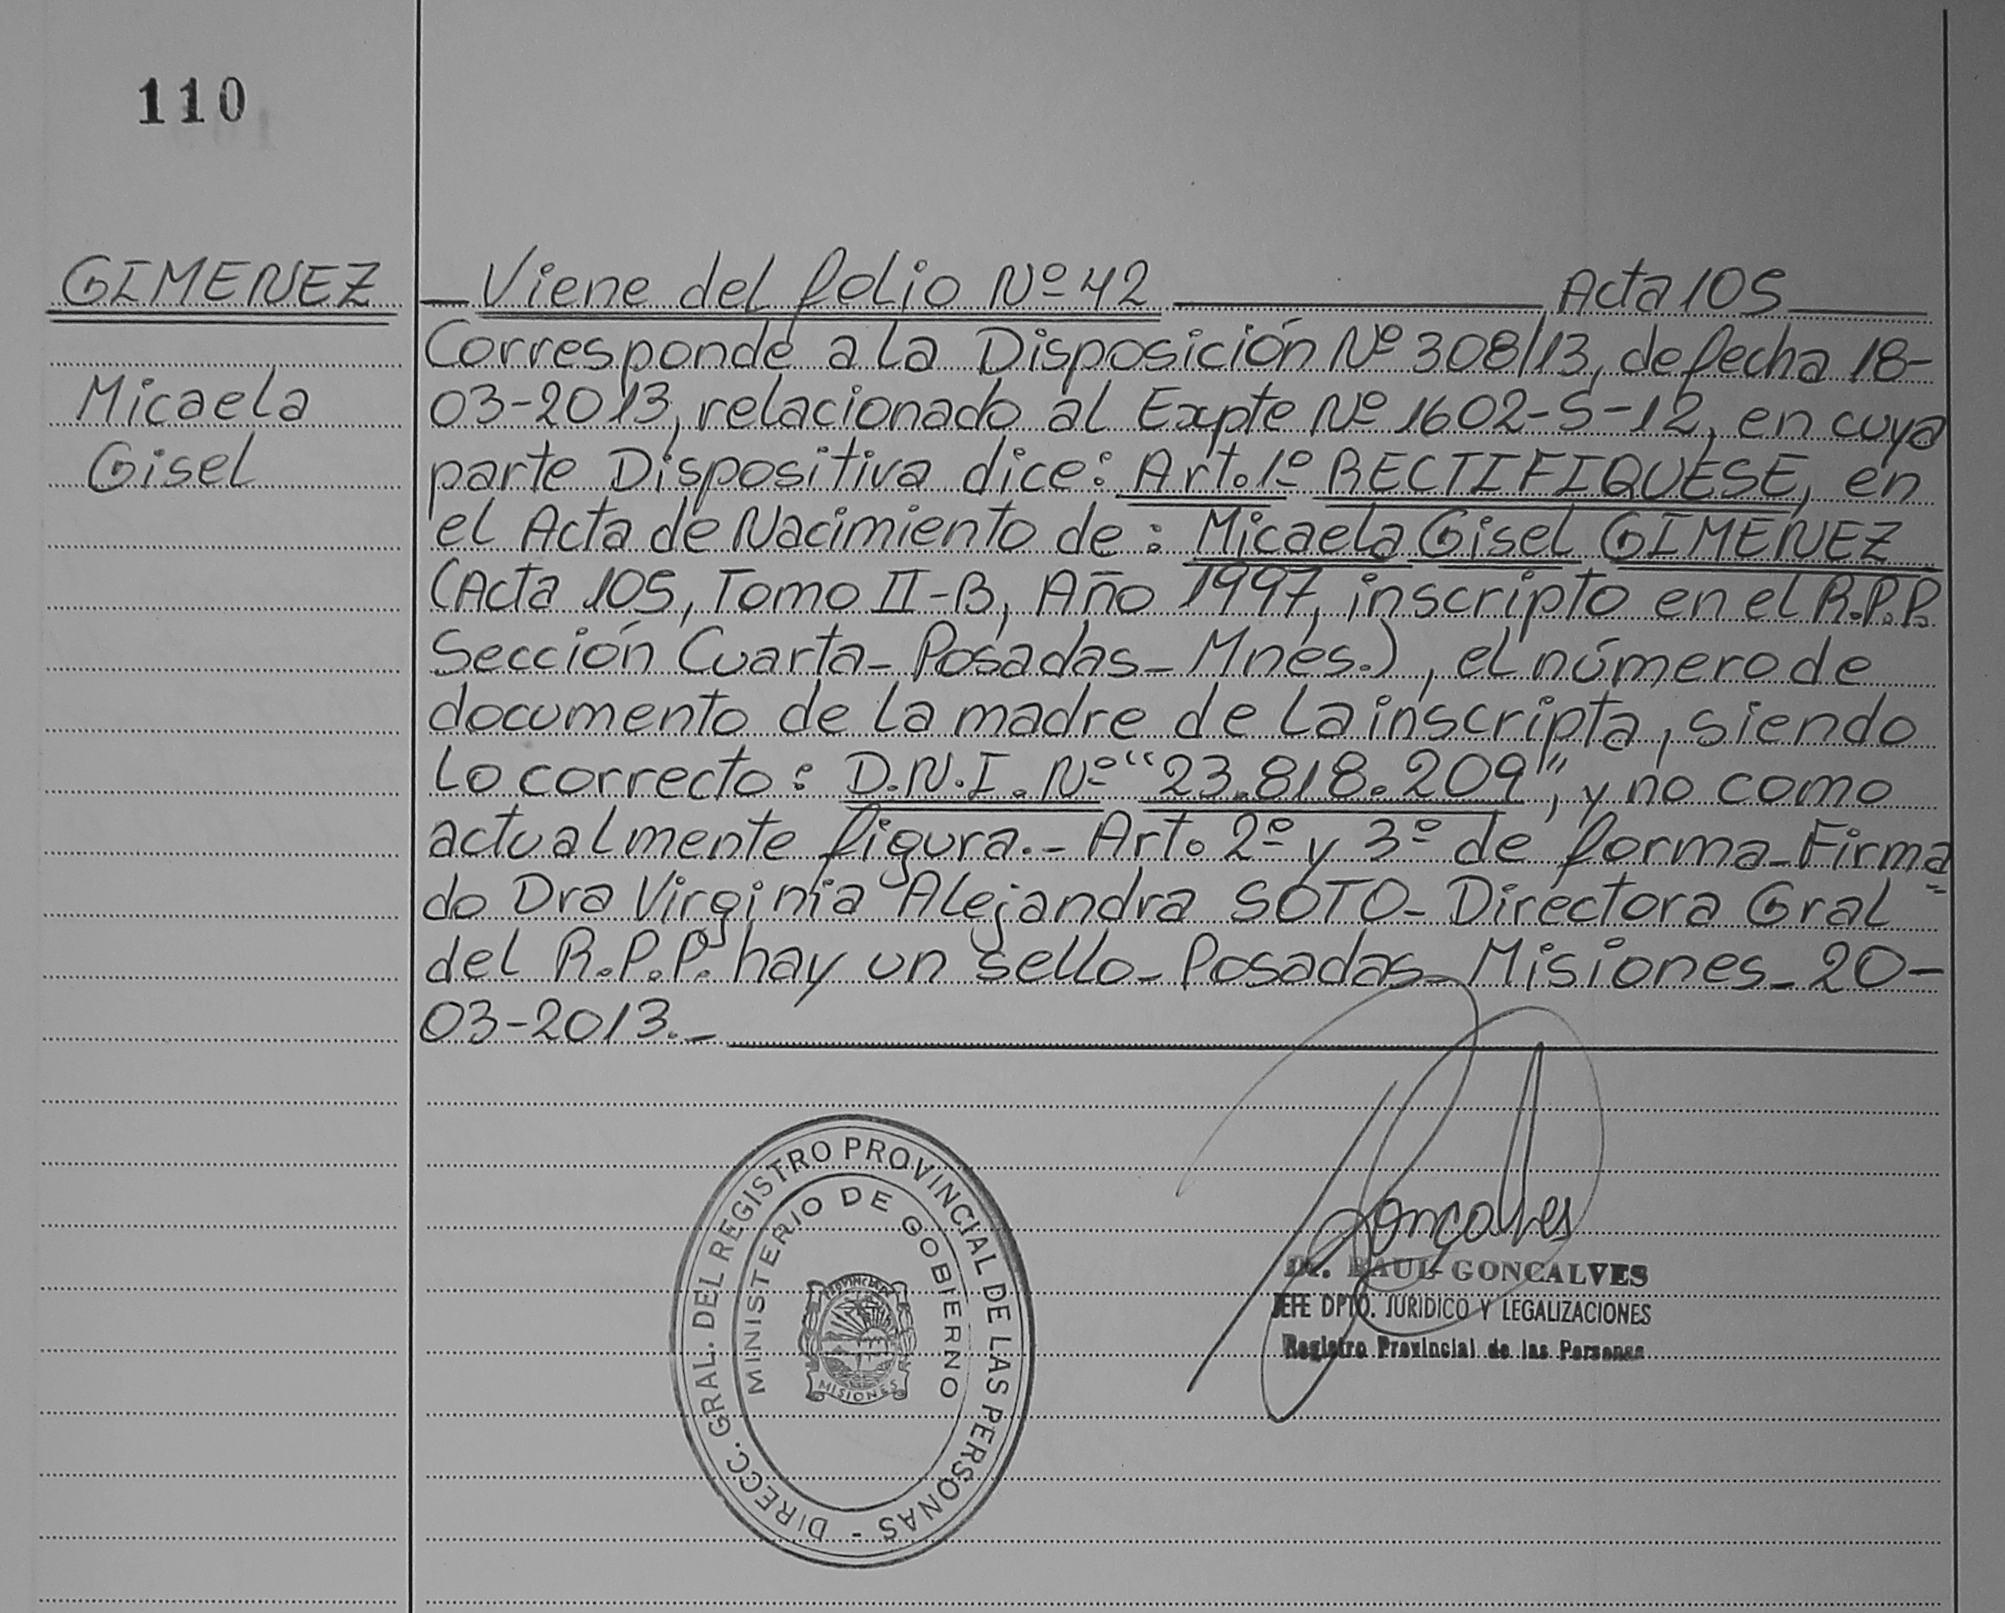 110
GIMENEZ
Micaela
Gisel
Viene del folio Nº 42 Acta 105
Corresponde a la Disposición Nº 308/13, de fecha 18-
03-2013, relacionado al Expte Nº 1602-S-12, en cuya
parte Dispositiva dice: Art. 1º RECTIFIQUESE, en
el Acta de Nacimiento de: Micaela Gisel GIMENEZ
(Acta 105, Tomo II-B, Año 1997, inscripto en el R.P.P.
Sección Cuarta- Posadas- Mnes.), el número de
documento de la madre de la inscripta, siendo
lo correcto: D.N.I. Nº "23.818.209", y no como
actualmente figura.- Art. 2º y 3º de forma- Firma=
do Dra Virginia Alejandra SOTO- Directora Gral
del R.P.P. hay un sello- Posadas- Misiones- 20-
03-2013.-
DIRECC. GRAL. DEL REGISTRO PROVINCIAL DE LAS PERSONAS -
MINISTERIO DE GOBIERNO
PROVINCIA DE
MISIONES
Goncalves
Dr. RAUL GONCALVES
JEFE DPTO. JURIDICO Y LEGALIZACIONES
Registro Provincial de las Personas